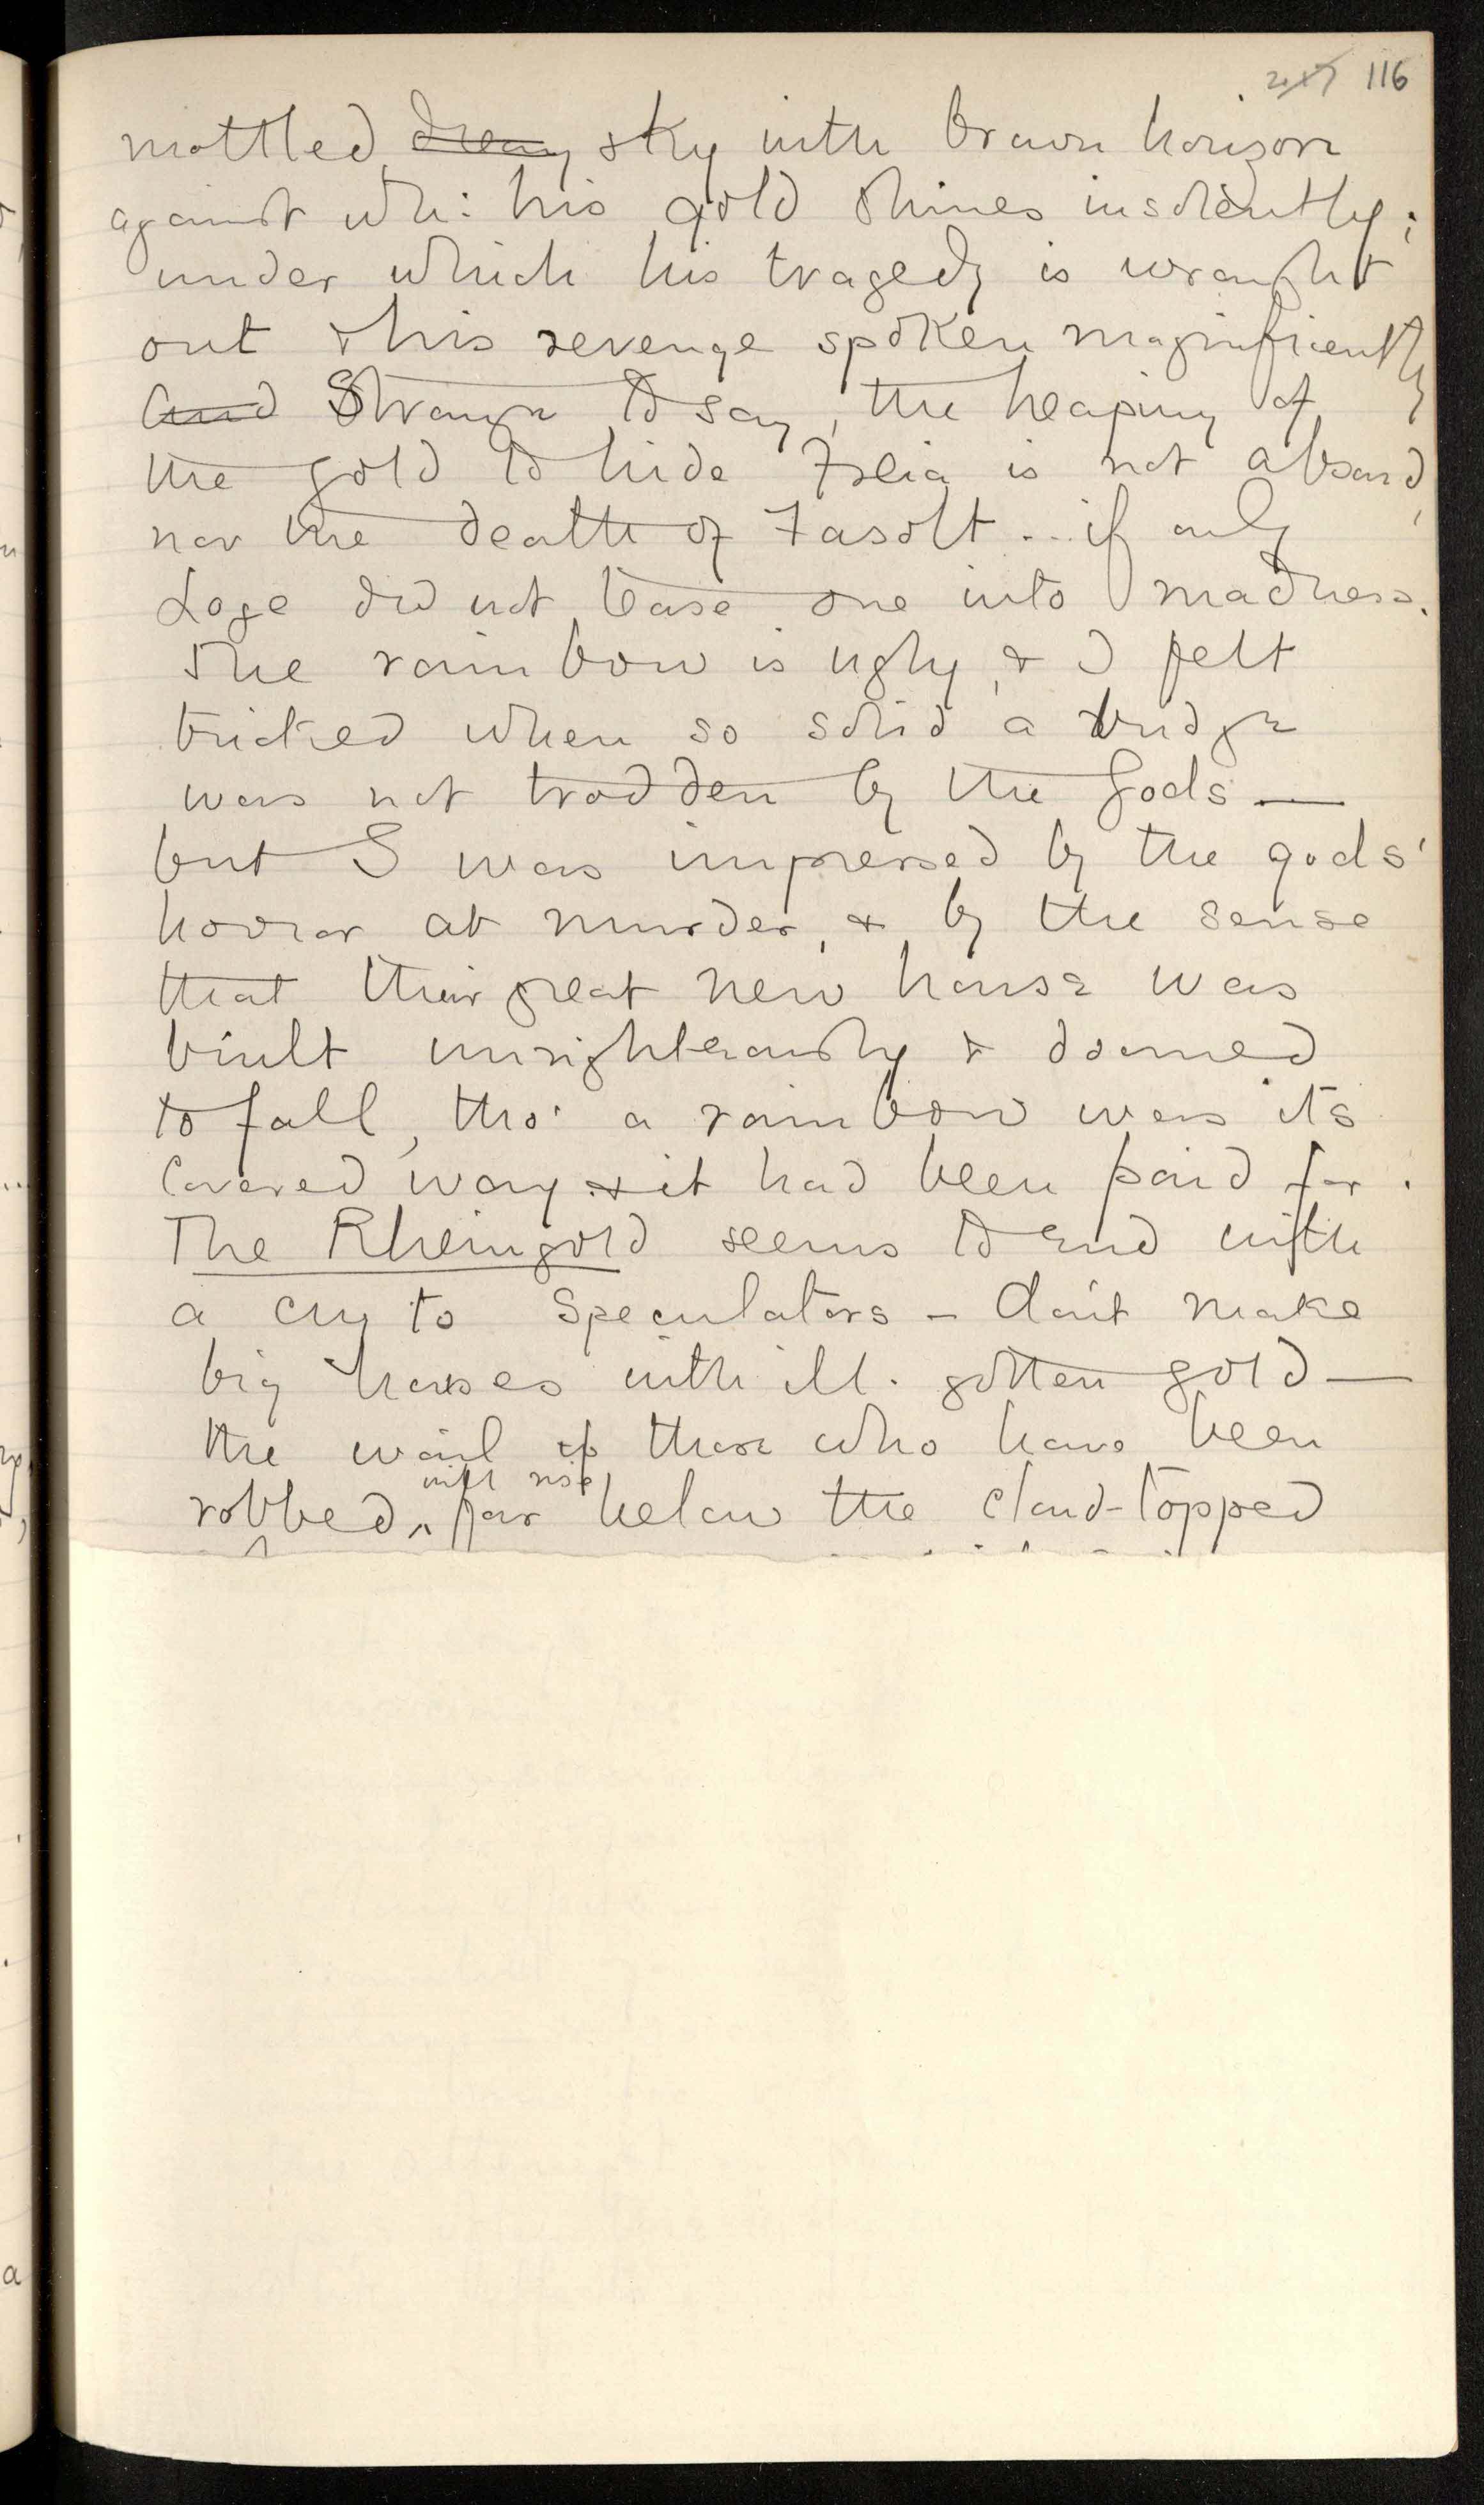 116
mottled dreary sky with brown horizon
against wh: his gold shines insolently;
under which his tragedy is wrought
out & his revenge spoken magnificently
And Strange to say, the heaping of
the gold to hide Freia is not absurd,
nor the death of Fasolt... if only
Loge did not tease one into madness.
The rainbow is ugly, & I felt
tricked when so solid a bridge
was not trodden by the Gods —
but I was impressed by the gods'
horror at murder, & by the sense
that their great new house was
built unrighteously & doomed
to fall, tho' a rainbow was its
covered way & it had been paid for.
The Rheingold seems to end with
a cry to Speculators – don't make
big houses with ill-gotten gold —
the wail of those who have been
will rise
robbed, far below the cloud-topped